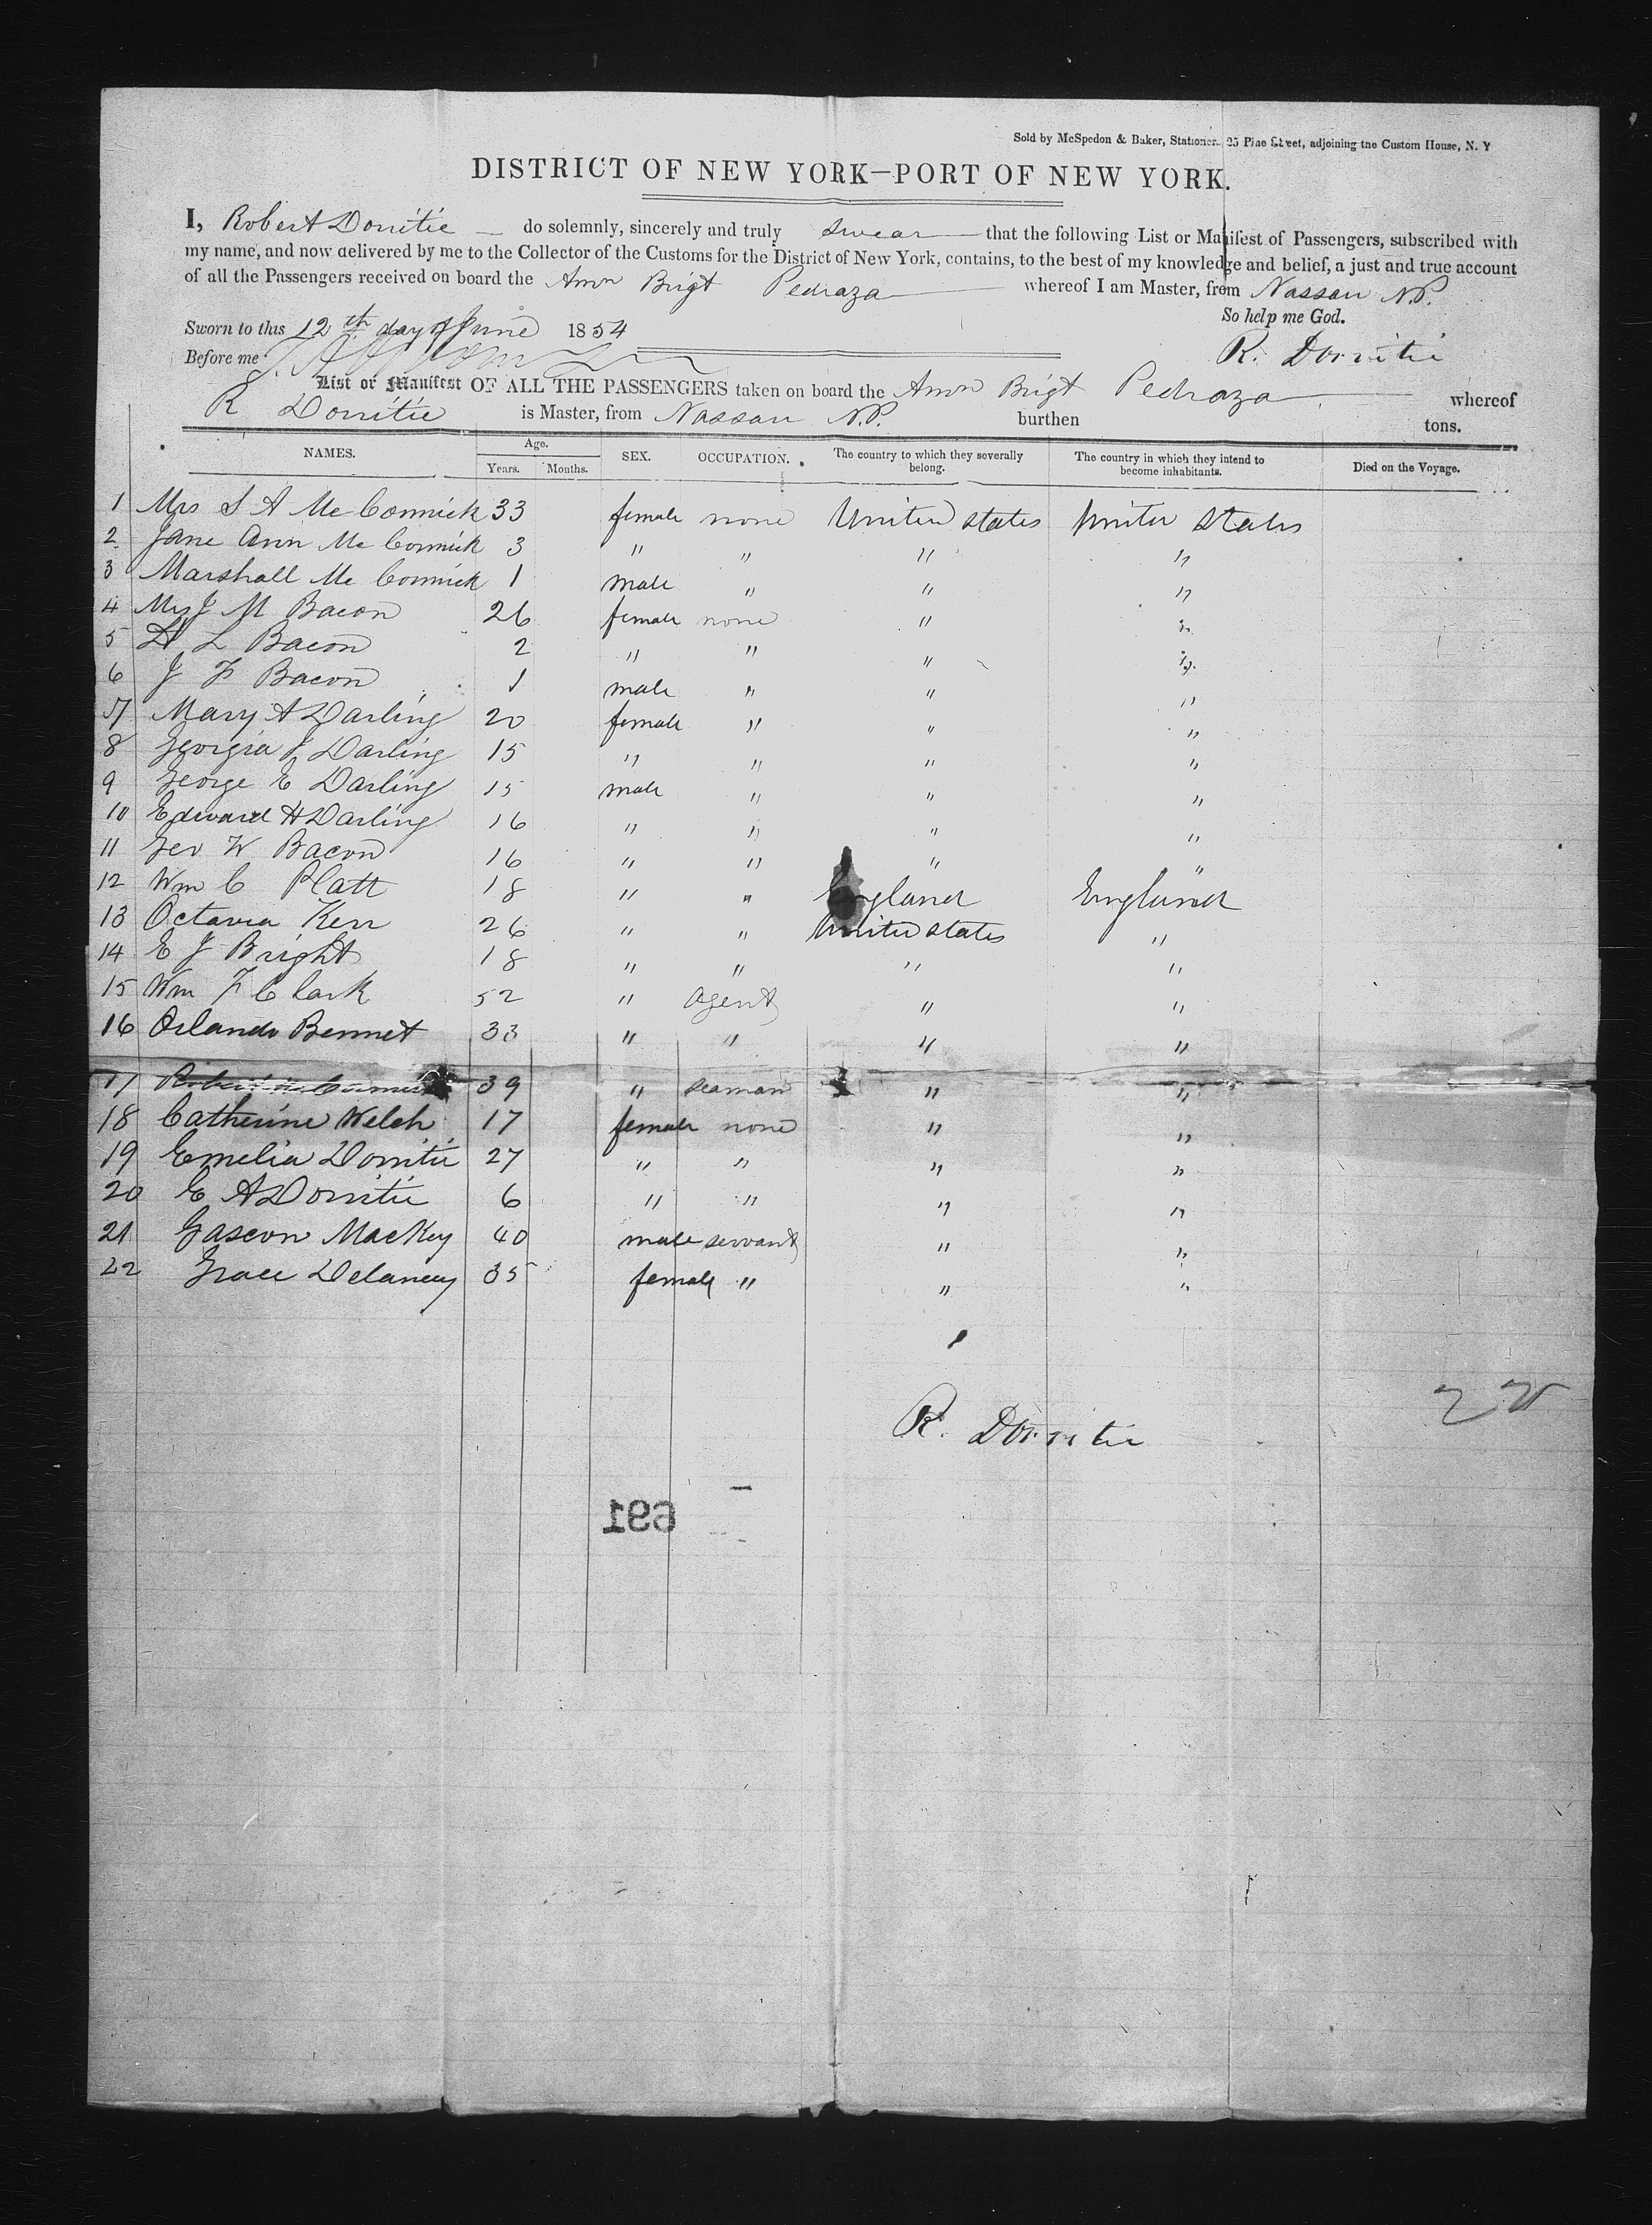 Sold by McSpedon & Baker, Stationer. 25 Pine Street, adjoining the Custom House, N. Y
DISTRICT OF NEW YORK—PORT OF NEW YORK.
I, Robert Dorritie — do solemnly, sincerely and truly swear — that the following List or Manifest of Passengers, subscribed with
my name, and now delivered by me to the Collector of the Customs for the District of New York, contains, to the best of my knowledge and belief, a just and true account
of all the Passengers received on board the Amn Brigt Pedraza whereof I am Master, from Nassau N.P.
So help me God.
Sworn to this 12th day of June 1854
R. Dorritie
Before me
List or Manifest OF ALL THE PASSENGERS taken on board the Amn Brigt Pedraza whereof
R Dorritie is Master, from Nassau N.P. burthen tons.
NAMES. Age. Years. Months. SEX. OCCUPATION. The country to which they severally belong. The country in which they intend to become inhabitants. Died on the Voyage.
1 Mrs S A Mc Cormick 33 female none United states United States
2 Jane Ann Mc Cormick 3 " " " "
3 Marshall Mc Cormick 1 male " " "
4 Mrs J M Bacon 26 female none " "
5 H L Bacon 2 " " " "
6 J F Bacon 1 male " " "
7 Mary A Darling 20 female " " "
8 Georgia J Darling 15 " " " "
9 George E Darling 15 male " " "
10 Edward H Darling 16 " " " "
11 Geo W Bacon 16 " " " "
12 Wm C Platt 18 " " England England
13 Octavia Kerr 26 " " United states "
14 E J Bright 18 " " " "
15 Wm F Clark 52 " Agent " "
16 Orlando Bennet 33 " " " "
17 39 " seaman " "
18 Catherine Welch 17 female none " "
19 Emelia Dorritie 27 " " " "
20 E A Dorritie 6 " " " "
21 Gascon Mackey 40 male servant " "
22 Grace Delancy 35 female " " "
R. Dorritie
691